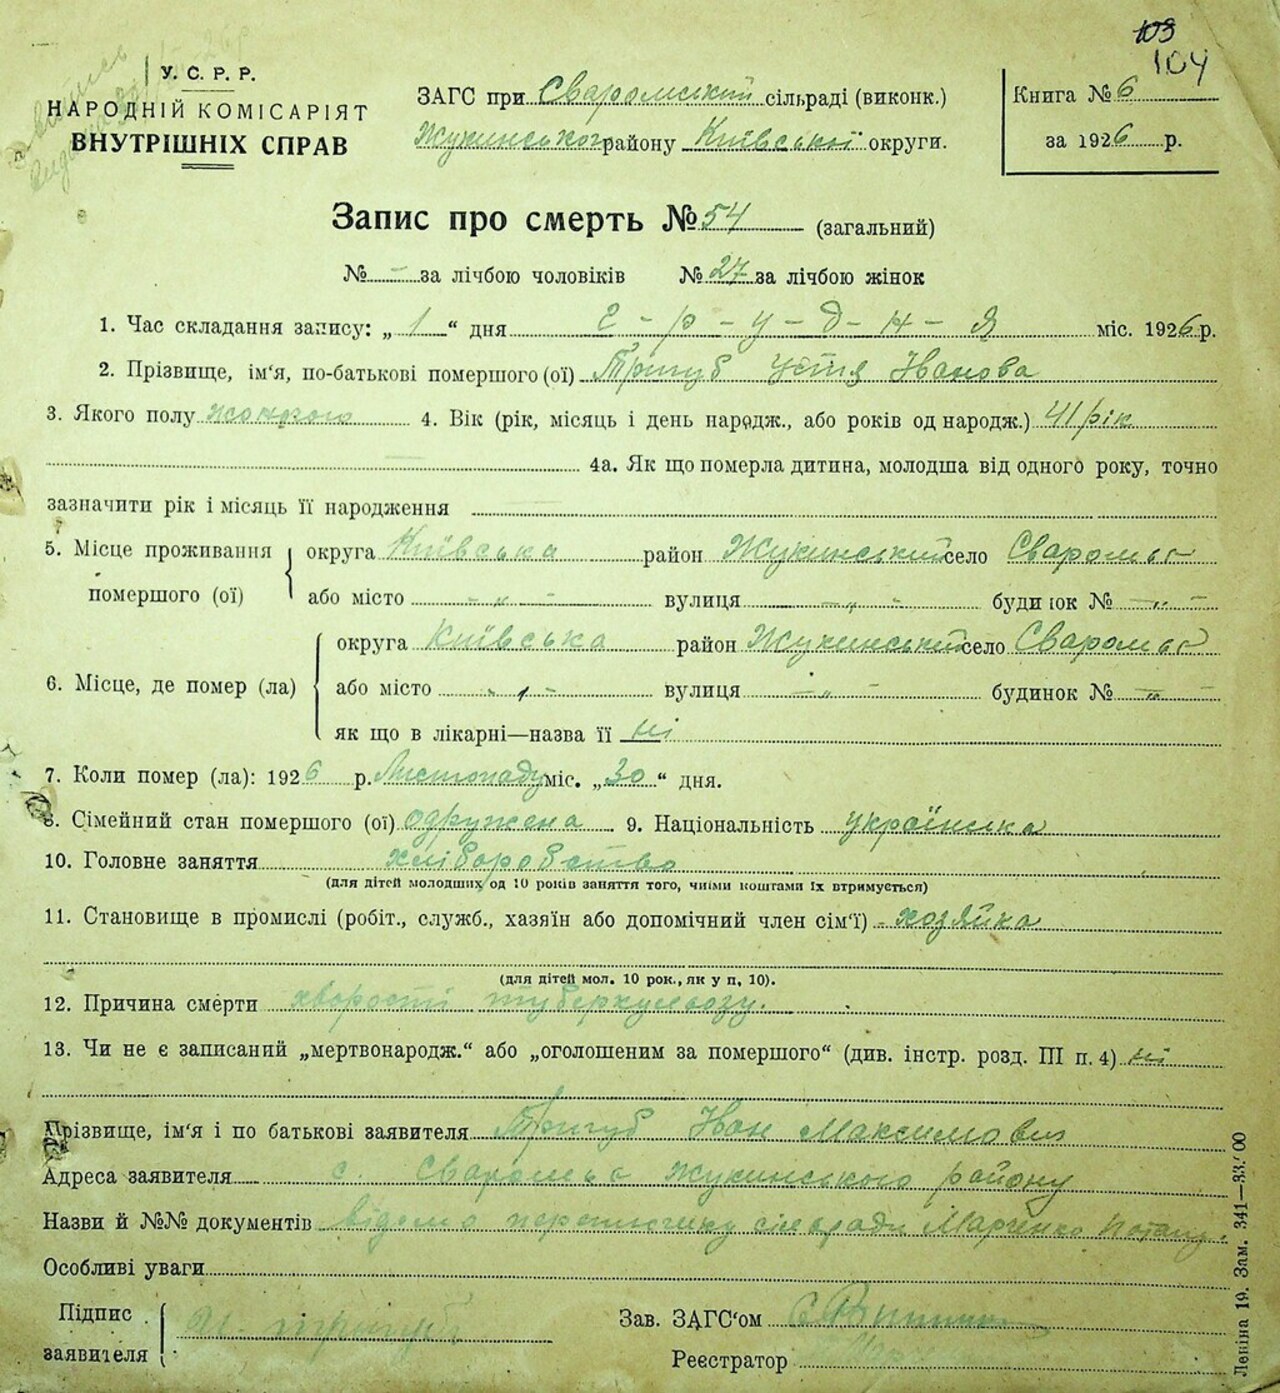 103
104
У. С. Р. Р.
НАРОДНІЙ КОМІСАРІЯТ
ВНУТРІШНІХ СПРАВ
ЗАГС при Сваромський сільраді (виконк.)
Жукинського району Київської округи.
Книга № 6
за 1926 р.
Запис про смерть № 54 (загальний)
№ - за лічбою чоловіків № 27 за лічбою жінок
1. Час складання запису: „1“ дня г-р-у-д-н-я міс. 1926 р.
2. Прізвище, ім‘я, по-батькові помершого (ої) Тригуб Устя Іванова
3. Якого полу жоночого 4. Вік (рік, місяць і день народж., або років од народж.) 41 рік
4а. Як що померла дитина, молодша від одного року, точно
зазначити рік і місяць її народження
5. Місце проживання помершого (ої) округа Київська район Жукинський село Сваромьє
або місто - „ - вулиця - „ - будинок № - „ -
6. Місце, де помер (ла) округа Київська район Жукинський село Сваромьє
або місто - „ - вулиця - „ - будинок № - „ -
як що в лікарні—назва її ні
7. Коли помер (ла): 1926 р. Листопаду міс. „30“ дня.
8. Сімейний стан помершого (ої) одружена 9. Національність українка
10. Головне заняття хліборобство
(для дітей молодших од 10 років заняття того, чиїми коштами їх втримується)
11. Становище в промислі (робіт., служб., хазяїн або допомічний член сім‘ї) - хозяйка
(для дітей мол. 10 рок., як у п. 10).
12. Причина смерти хворості туберкульозу.
13. Чи не є записаний „мертвонародж.“ або „оголошеним за помершого“ (див. інстр. розд. III п. 4) ні
Прізвище, ім‘я і по батькові заявителя Тригуб Іван Максимович
Адреса заявителя с. Сваромьє Жукинського району
Назви й №№ документів відомо сільради Марченко
Особливі уваги
Підпис заявителя И. Тригуб
Зав. ЗАГС‘ом
Реєстратор
Леніна 19. Зам. 341—33. 00